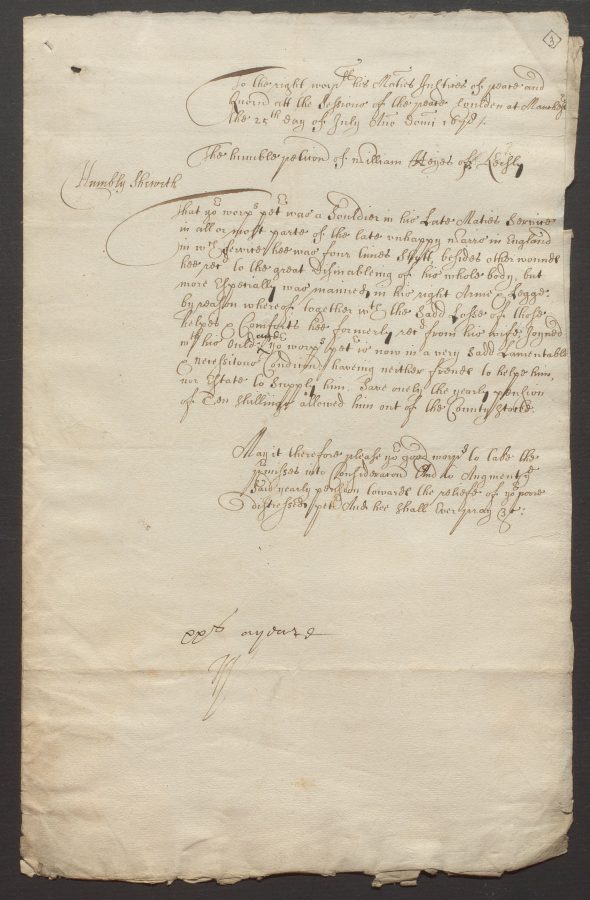 3
To the right worpll his Maties Justices of peace and
Quorum att the Sessions of the peace houlden at
the 25th day of July Ano Domi
The humble peticon of William Heyes of
Humbly Sheweth
That yor worps petr was a Souldier in his Late Maties Service
in all or most parte of the late unhappy warrs in England
in wch Service hee was four times Shott, besides other wounds
hee recd to the great disinableing of his whole body, but
more Especially was maimed in his right Arme & Legge:
by reason whereof together wth the Sadd Losse of those
helpes & Comforts hee formerly recd from his wife Joyned
wth his Ould age yor worps petr is now in a very Sadd Lamentable
& necessitous Condicon, haveing neither freind to helpe him,
nor Estate to Supply him. Save onely the yearly pension
of Ten Shillings allowed him out of the County Stocke.
May it therefore please yor good worps to take the
premisses into Consideracon And to Augment ye
said yearly pension towards the reliefe of yor poore
distressed petr And hee shall Ever pray &c:
xxs a yeare